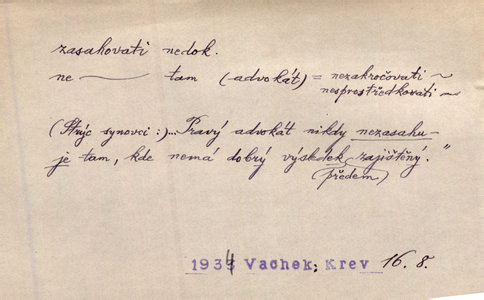 zasahovati nedok.
ne ~ tam (advokát) = nezakročovati ~
nesprostředkovati ~
(Strýc synovci:)... Pravý advokát nikdy nezasahu-
je tam, kde nemá dobrý výsledek zajištěný."
(předem)
1934 Vachek; Krev 16. 8.